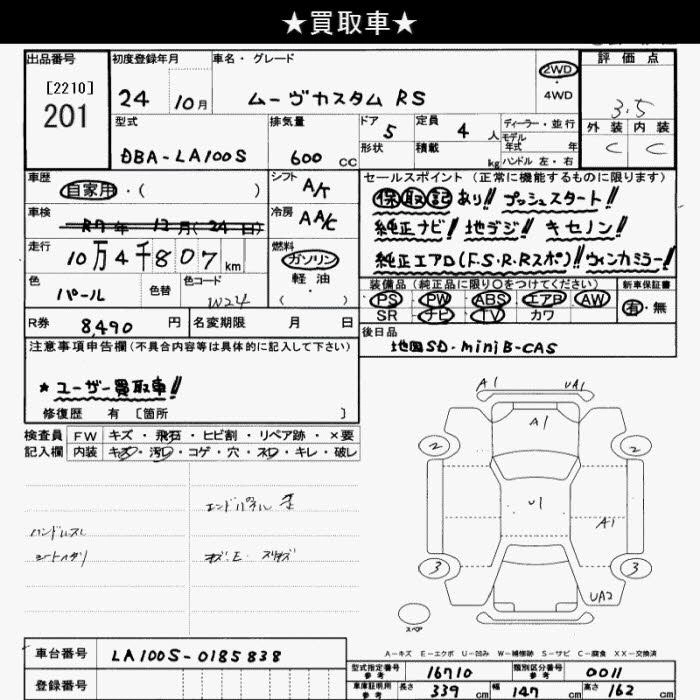 ★買取車★
出品番号 初度登録年月 車名・グレード 評価点
[2210]
201
24 10月 ムーヴカスタム RS 2WD ・ 4WD 3.5
型式 排気量 ドア 定員 ディーラー・並行 外装 内装
DBA-LA100S 600 CC 5 4 人 モデル年式 年 C C
形状 積載 kg ハンドル 左・右
車歴 シフト セールスポイント (正常に機能するものに限ります)
自家用・( ) A/T 保 取 記 あり!! プッシュスタート!!
車検 冷房 純正ナビ! 地デジ! キセノン!
R7年 12月(24日) AAC
走行 燃料 純正エアロ(F.S.R.Rスポ)! ウィンカミラー!
10万4千807 km ガソリン
軽油
( )
色 色替 色コード 装備品 (純正品に限り〇をつけてください) 新車保証書
パール W24 PS PW ABS エアB AW 有・無
SR ナビ TV カワ
R券 8,490 円 名変期限 月 日 後日品
地図SD・miniB-CAS
注意事項申告欄(不具合内容等は具体的に記入して下さい)
★ユーザー買取車!!
修復歴 有 〔箇所 〕
検査員 FW キズ・飛石・ヒビ割・リペア跡・×要
記入欄 内装 キズ・汚レ・コゲ・穴・スレ・キレ・破レ
エンドパネル
ハンドルスレ
シートヘタリ
A1 UA1
A1
2 2
U1
A1
3 3
UA2
スペア
A-キズ E-エクボ U-凹み W-補修跡 S-サビ C-腐食 XX-交換済
車台番号 LA100S-0185838
型式指定番号 参考 16710 類別区分番号 参考 0011
登録番号
車庫証明用 参考 長さ 339 cm 幅 147 cm 高さ 162 cm